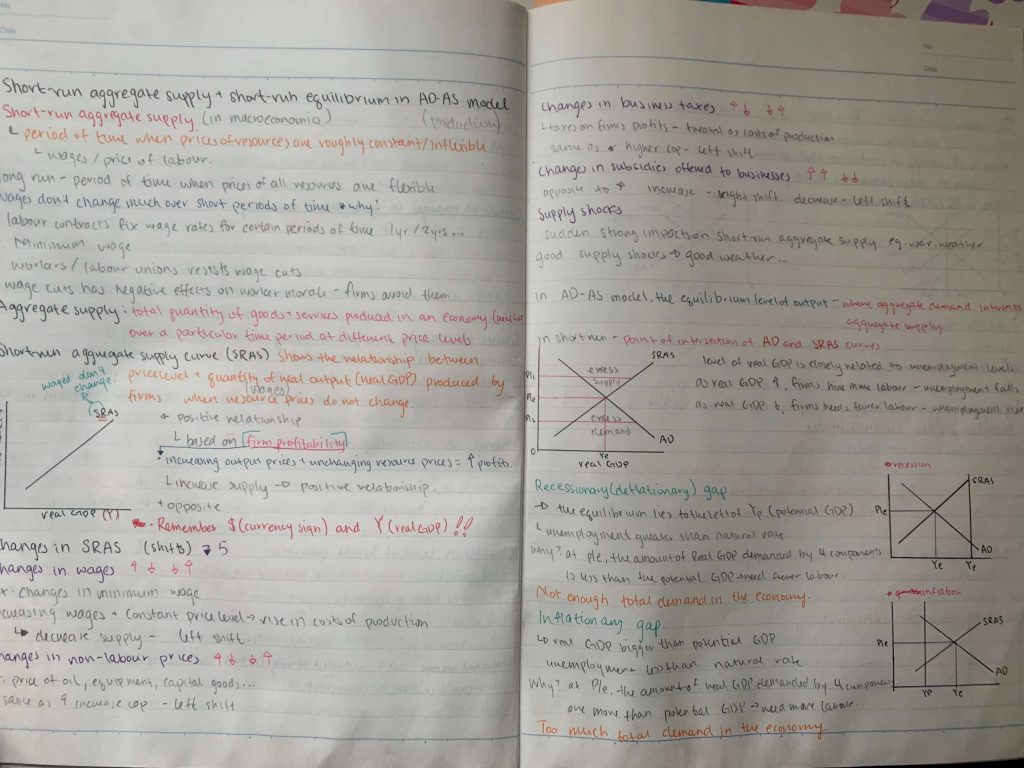 No
Date
Short-run aggregate supply + short-run equilibrium in AD-AS model
Short-run aggregate supply (in macroeconomics) (production)
↳ period of time when prices of resources are roughly constant/inflexible
↳ wages / price of labour.
ong run - period of time when prices of all resources are flexible
wages don't change much over short periods of time → why?
labour contracts fix wage rates for certain periods of time 1yr / 2yrs...
Minimum wage
workers / labour unions resists wage cuts
wage cuts has negative effects on worker morale - firms avoid them
Aggregate supply: total quantity of goods + services produced in an economy
over a particular time period at different price levels
Short-run aggregate supply curve (SRAS) shows the relationship between
price level + quantity of real output (real GDP) produced by
(wages)
firms when resource prices do not change.
wages don't
change
SRAS
real GDP (Y)
+ positive relationship
↳ based on firm profitability
increasing output prices + unchanging resource prices = ↑ profits.
↳ increase supply → positive relationship
+ opposite
Remember $ (currency sign) and Y (real GDP) !!
hanges in SRAS (shifts) → 5
hanges in wages ↑↓ ↓↑
changes in minimum wage
creasing wages + constant price level → rise in costs of production
↳ decrease supply - left shift.
hanges in non-labour prices ↑↓ ↓↑
price of oil, equipment, capital goods...
same as ↑ increase cop - left shift
No
Date
Changes in business taxes ↑↓ ↓↑
↳ taxes on firms profits - treated as costs of production
same as higher cop - left shift
Changes in subsidies offered to businesses ↑↑ ↓↓
opposite to ↑ increase - right shift. decrease - left shift
Supply shocks
sudden strong impacts on short-run aggregate supply eg. war, weather
good supply shocks → good weather..
in AD-AS model, the equilibrium level of output - where aggregate demand intersects
aggregate supply
in short run - point of intersection of AD and SRAS curves
SRAS
excess
supply
Ple
excess
demand
AD
0
Ye
real GDP
level of real GDP is closely related to unemployment level:
as real GDP ↑, firms hire more labour - unemployment falls.
as real GDP ↓, firms need fewer labour - unemployment
Recessionary (deflationary) gap
→ the equilibrium lies to the left of Yp (potential GDP)
↳ unemployment greater than natural rate
why? at Ple, the amount of Real GDP demanded by 4 components
is less than the potential GDP → need fewer labour.
Not enough total demand in the economy.
recession
SRAS
Ple
AD
Ye Yp
Inflationary gap.
↳ real GDP bigger than potential GDP
unemployment less than natural rate
Why? at Ple, the amount of real GDP demanded by 4 component
are more than potential GDP → need more labour.
Too much total demand in the economy
inflation
SRAS
Ple
AD
Yp Ye